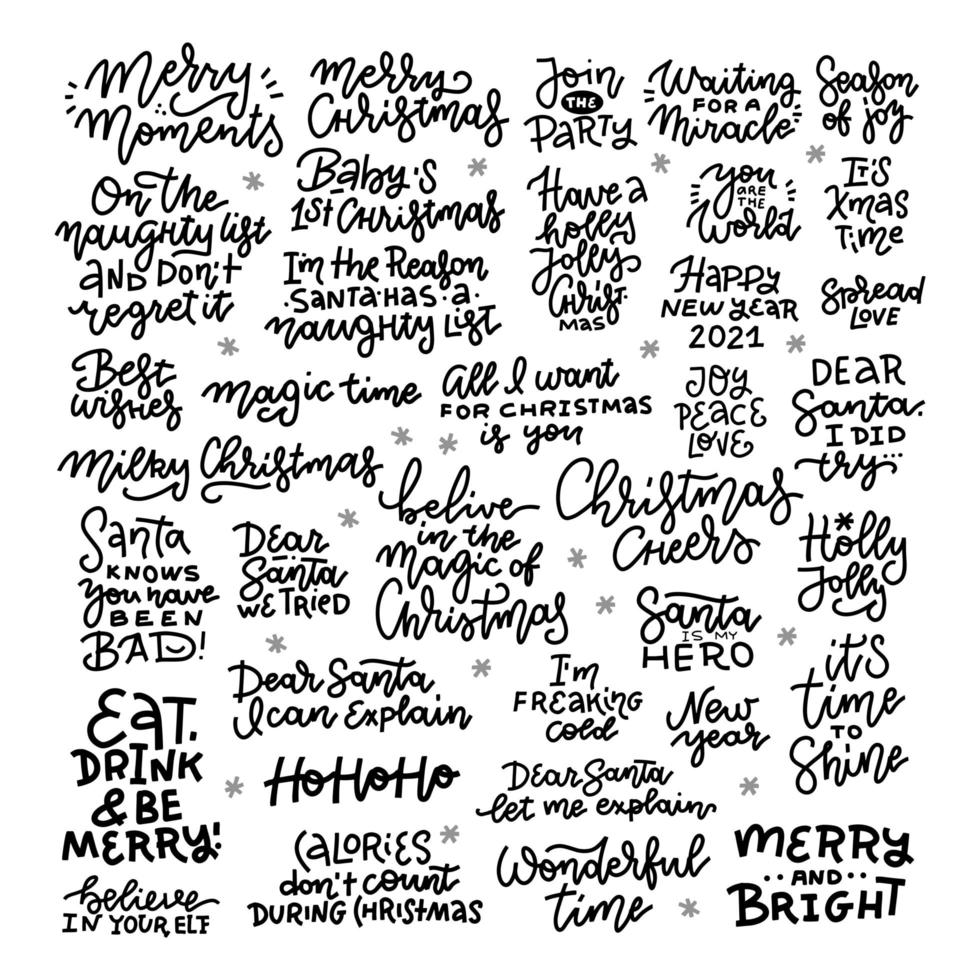 Merry
Moments
Merry
Christmas
Join
THE
PARTY
Waiting
FOR A
Miracle
Season
of joy
On the
naughty list
AND Don't
regret it
Baby's
1st Christmas
I'm the Reason
SANTA HAS a
naughty List
Have a
holly
Jolly
Christ
MAS
you
ARE
THE
World
It's
Xmas
Time
HAPPY
NEW YEAR
2021
Spread
LOVE
Best
wishes
magic time
All I want
FOR CHRISTMAS
is you
JOY
PEACE
LOVE
DEAR
Santa.
I DID
try...
Milky Christmas
belive
in the
Magic of
Christmas
Christmas
CHeeRS
Santa
KNOWS
you have
BEEN
BAD!
Dear
Santa
WE TRIED
Holly
Jolly
Santa
IS MY
HERO
it's
time
TO
Shine
Dear Santa,
I can Explain
I'm
FREAKING
cold
New
year
EAT,
DRINK
& BE
MERRY!
HoHoHo
Dear Santa
let me explain
CALORIES
don't count
DURING CHRISTMAS
Wonderful
time
MERRY
AND
BRIGHT
believe
IN YOUR ELF